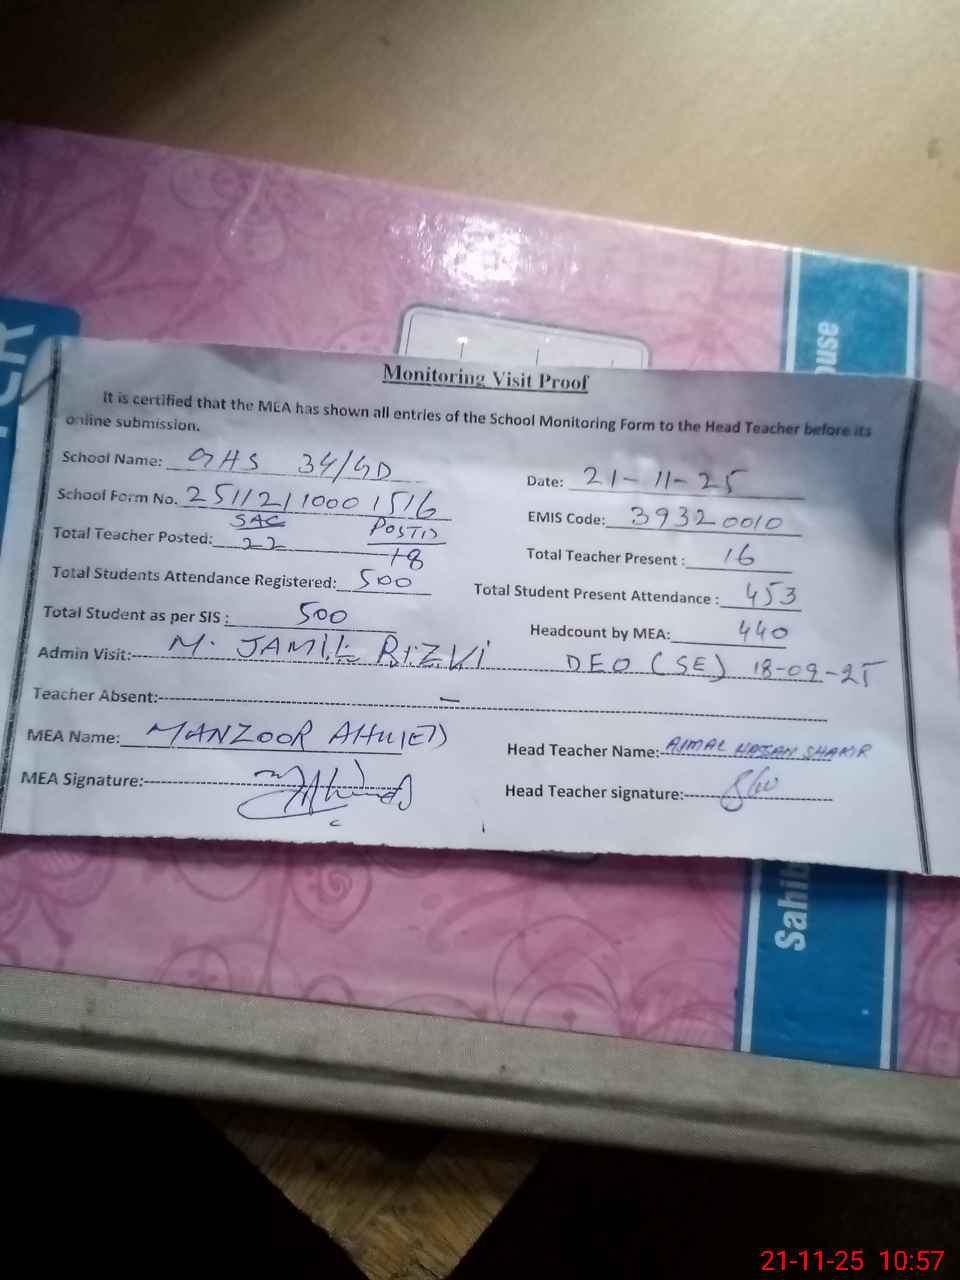 use
Monitoring Visit Proof
It is certified that the MEA has shown all entries of the School Monitoring Form to the Head Teacher before its
online submission.
School Name: GHS 34/GD Date: 21-11-25
School Form No. 2511211000 1516 EMIS Code: 39320010
SAC POSTED
Total Teacher Posted: 22 18 Total Teacher Present : 16
Total Students Attendance Registered: 500 Total Student Present Attendance : 453
Total Student as per SIS : 500 Headcount by MEA: 440
Admin Visit: M. JAMIL RIZVI DEO (SE) 18-09-25
Teacher Absent: —
MEA Name: MANZOOR AHMED Head Teacher Name: AJMAL HASSAN SHAKIR
MEA Signature: Head Teacher signature:
Sahi
21-11-25 10:57